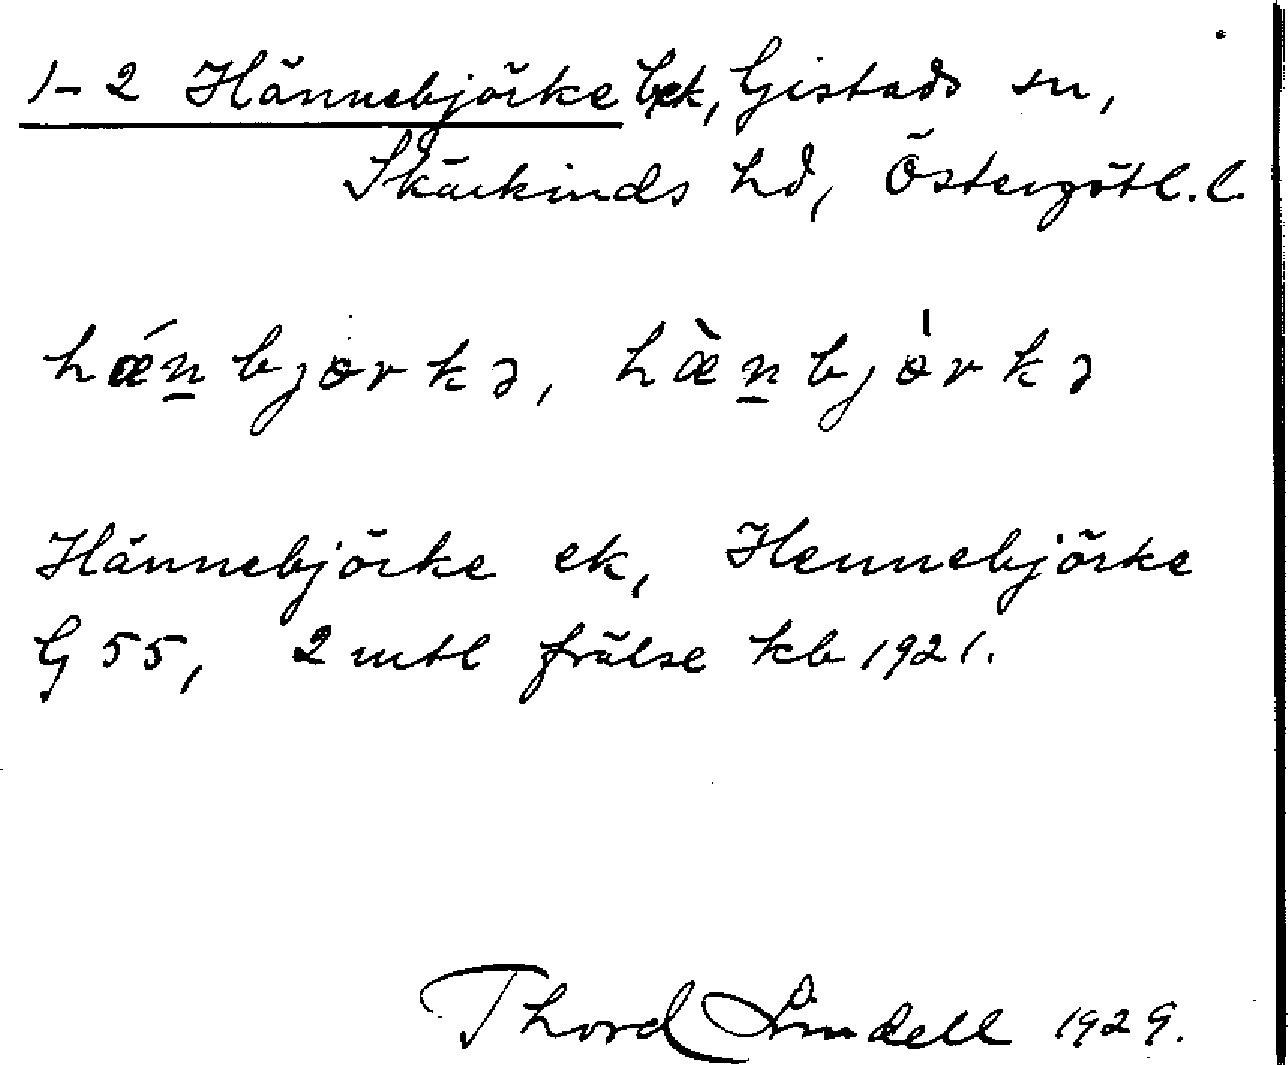 1-2 Hännebjörke bek, Gistads sn,
Skärkinds hd, Östergötl. l.
hǽn̲bjørkə, hæ̀n̲bjø̀rkə
Hännebjörke ek, Hennebjörke
G 55, 2 mtl frälse kb 1921.
Thord Lindell 1929.